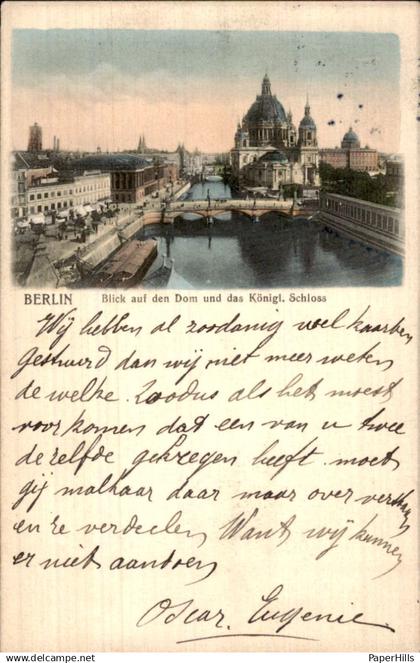 BERLIN Blick auf den Dom und das Königl. Schloss
Wij hebben al zoodanig veel kaarten
gestuurd dan wij niet meer weten
de welke. Zoodus als het moest
voorkomen dat een van u twee
dezelfde gekregen heeft moet
gij malkaar daar maar over
en ze verdeelen Want wij kunnen
er niet aandoen
Oscar. Eugenie
©PaperHills www.delcampe.net